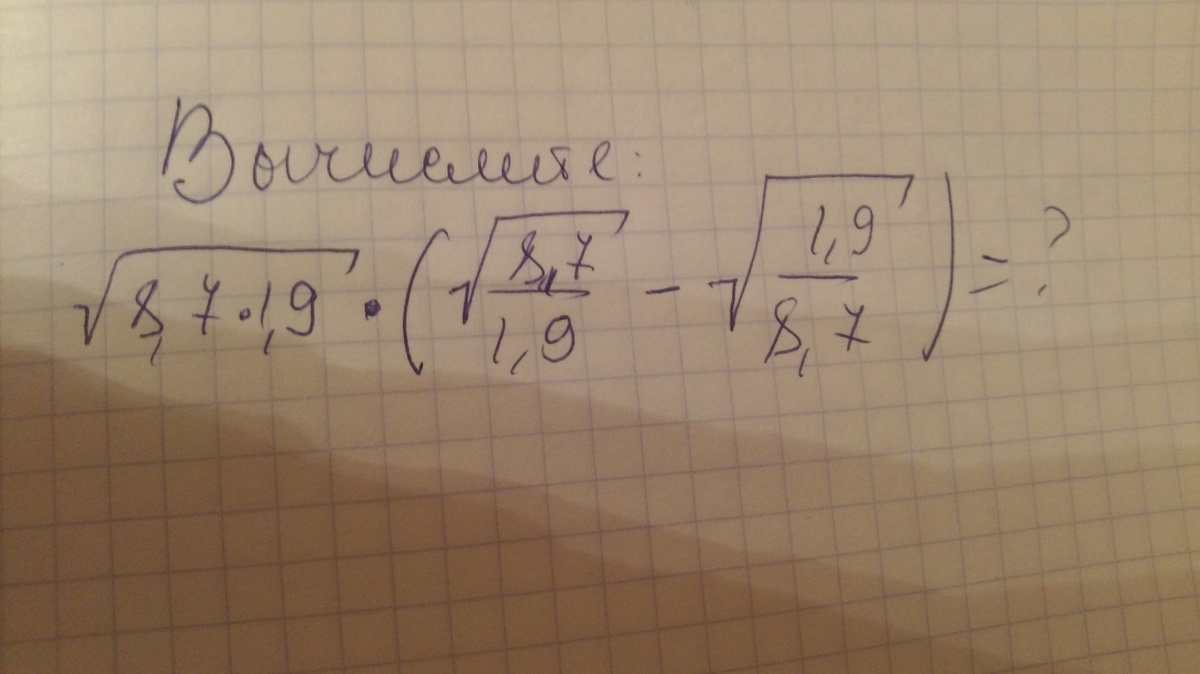 Вычислите:
√(8,7·1,9) · (√(8,7/1,9) - √(1,9/8,7)) = ?